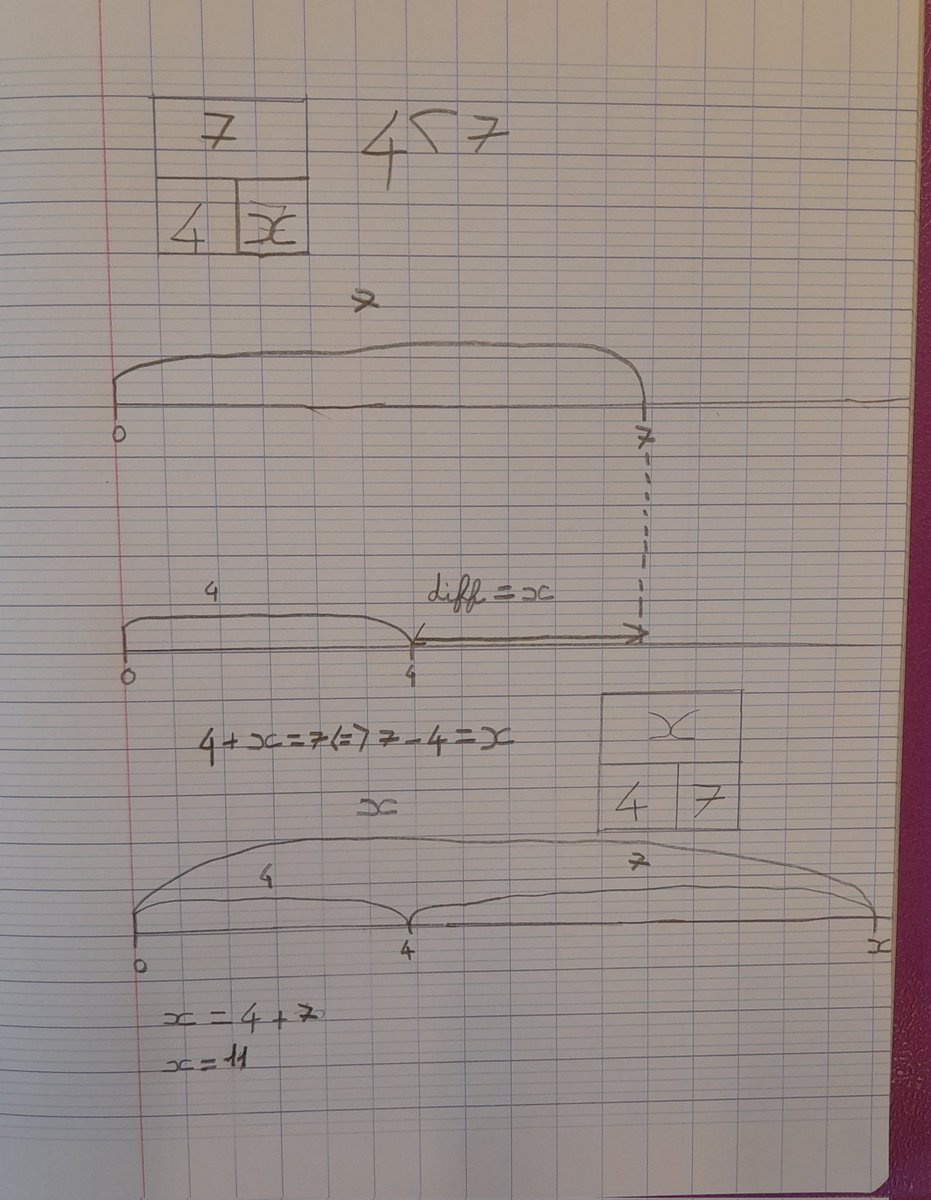 7
4 < 7
4 x
7
0 7
4
diff = x
0 4
4 + x = 7 <=> 7 - 4 = x
x
4 7
x
4 7
0 4 x
x = 4 + 7
x = 11